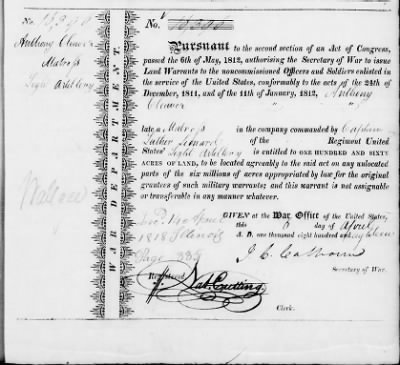 No. 18,390
No. 18390
Anthony Cleaver
Matross
Light Artillery
Wallace
WAR DEPARTMENT.
Pursuant to the second section of an Act of Congress,
passed the 6th of May, 1812, authorising the Secretary of War to issue
Land Warrants to the noncommissioned Officers and Soldiers enlisted in
the service of the United States, conformably to the acts of the 24th of
December, 1811, and of the 11th of January, 1812, Anthony
Cleaver
late a Matross in the company commanded by Captain
Luther Leonard of the Regiment United
States' Light Artillery is entitled to ONE HUNDRED AND SIXTY
ACRES OF LAND, to be located agreeably to the said act on any unlocated
parts of the six millions of acres appropriated by law for the original
grantees of such military warrants; and this warrant is not assignable
or transferable in any manner whatever.
GIVEN at the War Office of the United States,
this day of April
A. D. one thousand eight hundred and eighteen
J. C. Calhoun
Secretary of War.
1818 Illinois
Page 335
Registered
Nat. Cutting
Clerk.